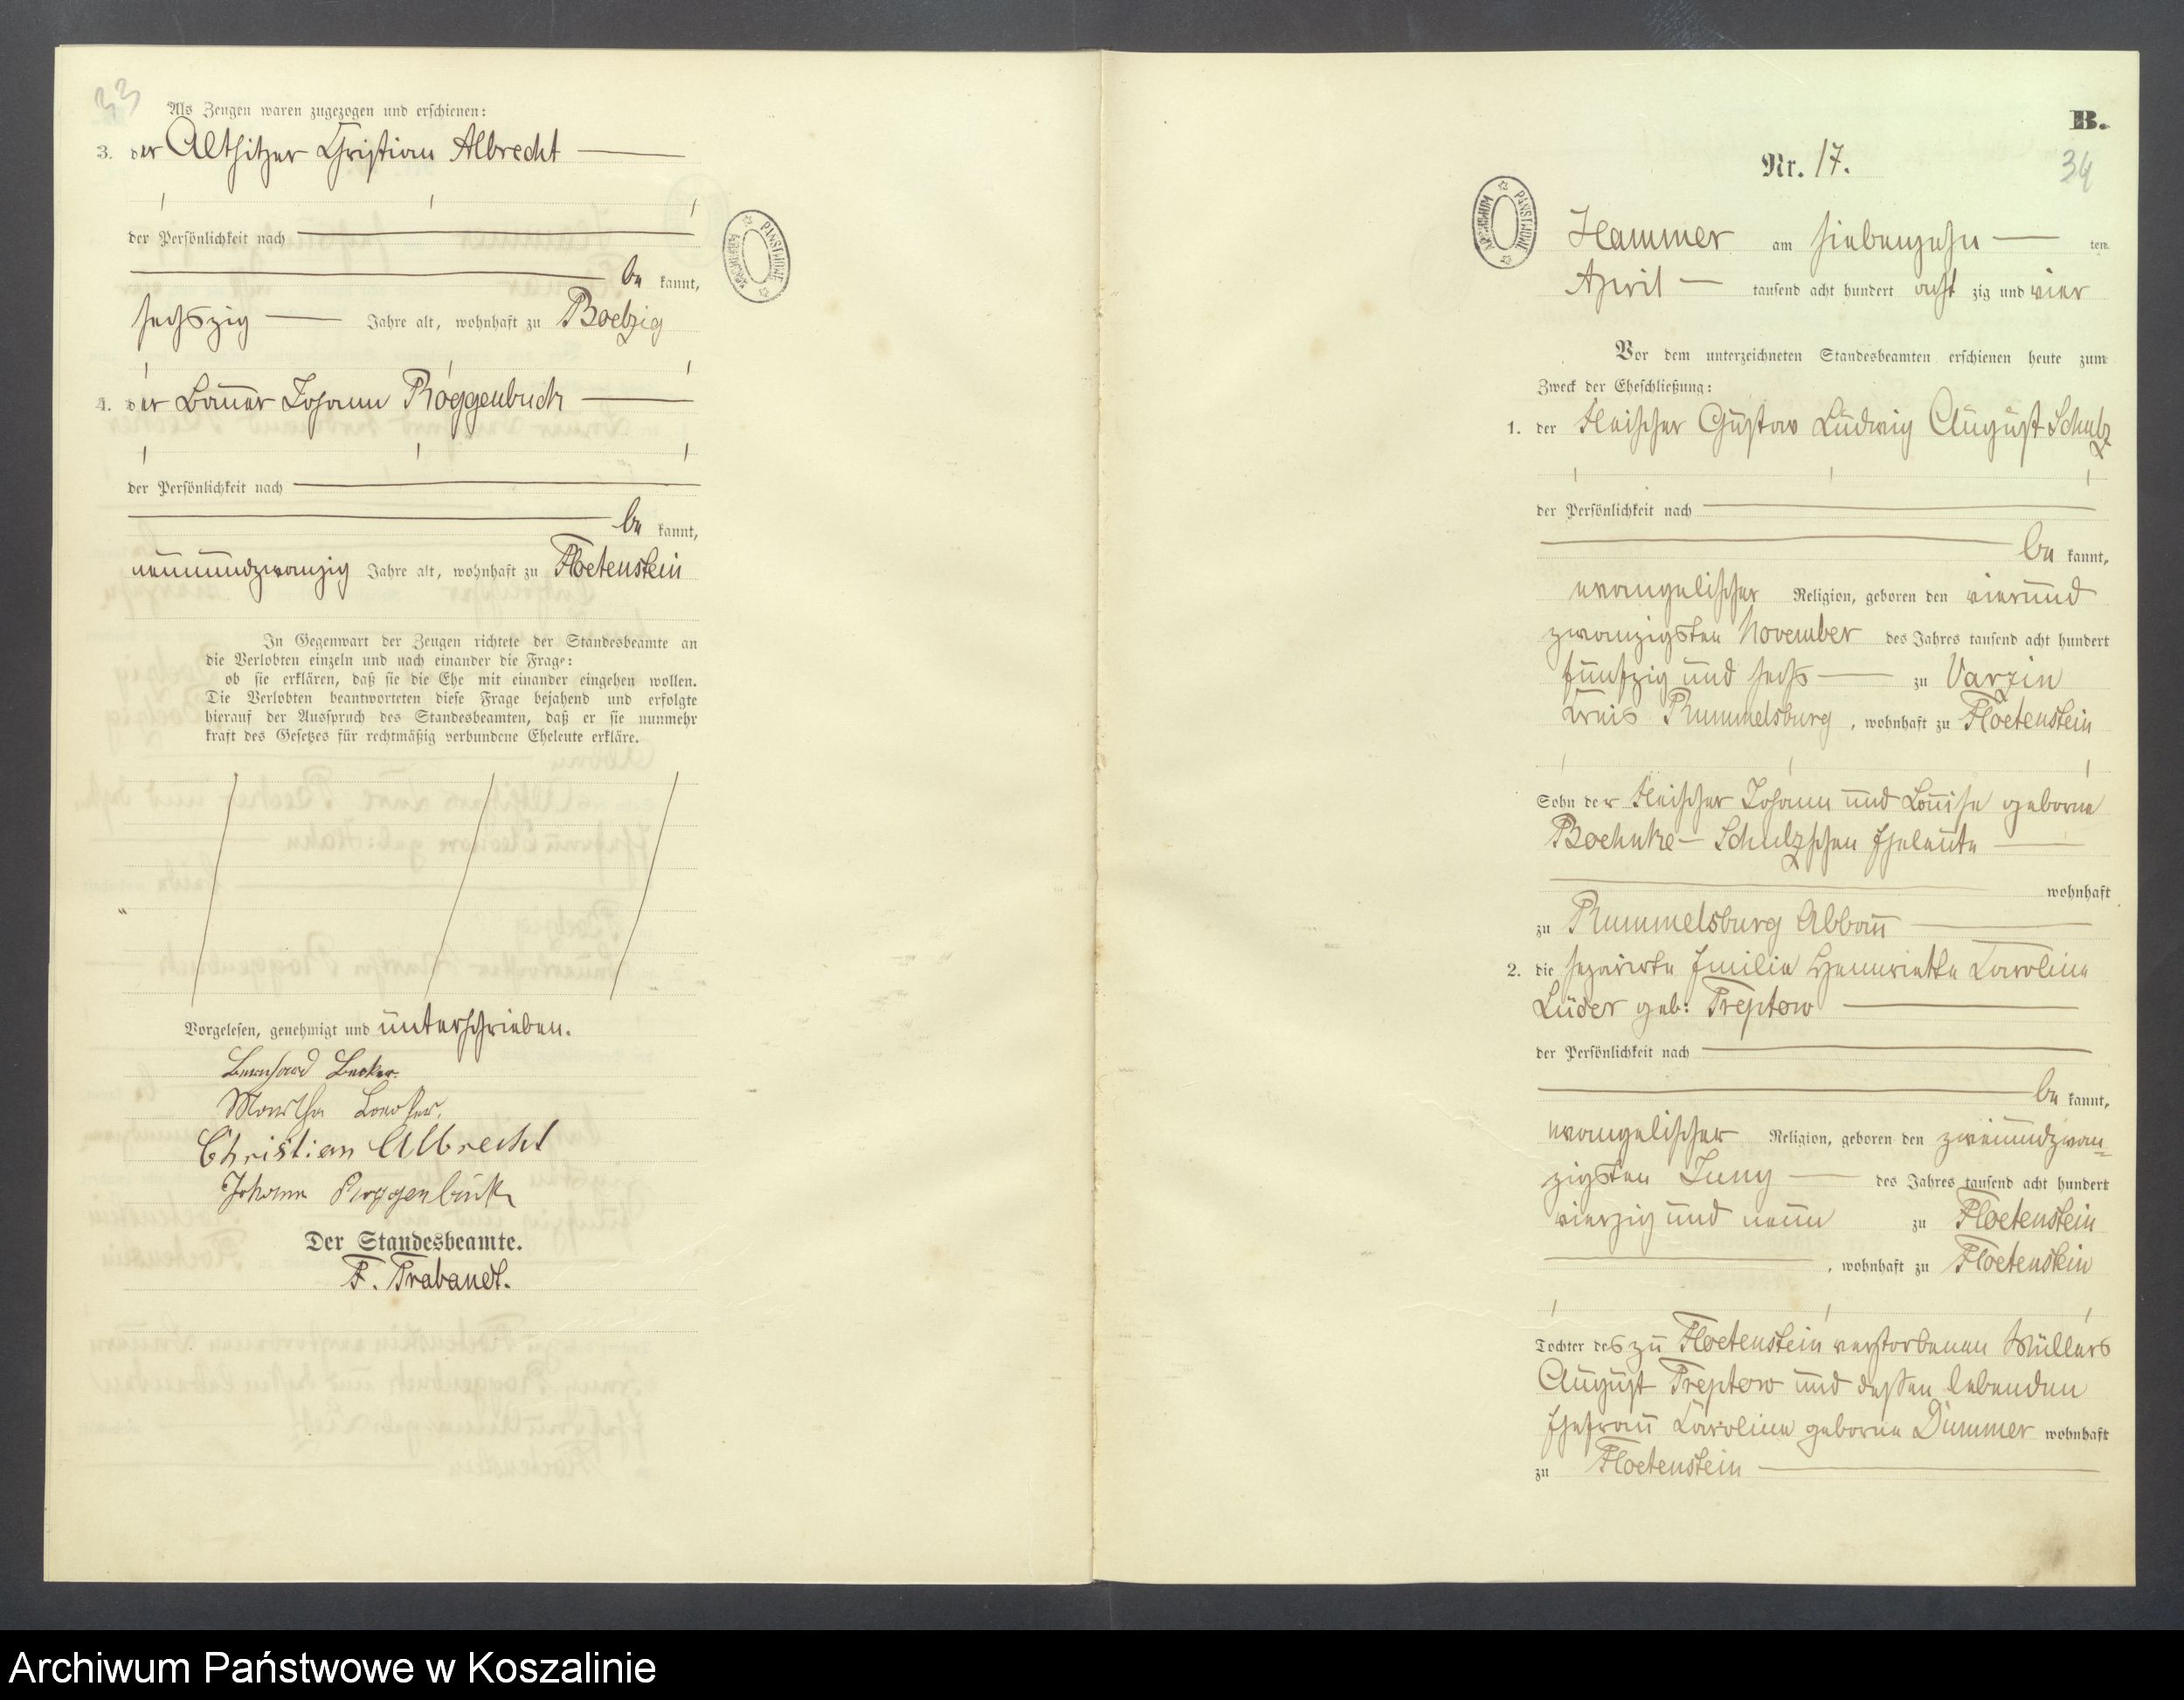 33
Als Zeugen waren zugezogen und erschienen:
3. der Altsitzer Christian Albrecht
der Persönlichkeit nach
be kannt,
sechszig Jahre alt, wohnhaft zu Boetzig
4. der Bauer Johann Roggenbuck
der Persönlichkeit nach
be kannt,
neunundzwanzig Jahre alt, wohnhaft zu Floetenstein
In Gegenwart der Zeugen richtete der Standesbeamte an
die Verlobten einzeln und nach einander die Frage:
ob sie erklären, daß sie die Ehe mit einander eingehen wollen.
Die Verlobten beantworteten diese Frage bejahend und erfolgte
hierauf der Ausspruch des Standesbeamten, daß er sie nunmehr
kraft des Gesetzes für rechtmäßig verbundene Eheleute erkläre.
Vorgelesen, genehmigt und unterschrieben.
Bernhard Becker.
Martha
Christian Albrecht
Johann Roggenbuck
Der Standesbeamte.
F. Trabandt.
ARCHIWUM PAŃSTWOWE
B.
34
Nr. 17.
ARCHIWUM PAŃSTWOWE
Hammer am siebenzehn ten
April tausend acht hundert acht zig und vier
Vor dem unterzeichneten Standesbeamten erschienen heute zum
Zweck der Eheschließung:
1. der Fleischer Gustav Ludwig August Schulz
der Persönlichkeit nach
be kannt,
evangelischer Religion, geboren den vierund
zwanzigsten November des Jahres tausend acht hundert
fünfzig und sechs zu Varzin
Kreis Rummelsburg, wohnhaft zu Floetenstein
Sohn der Fleischer Johann und Louise geborne
Boehnke - Schulzschen Eheleute
wohnhaft
zu Rummelsburg Abbau
2. die separirte Emilie Henriette Caroline
Lüder geb: Treptow
der Persönlichkeit nach
be kannt,
evangelischer Religion, geboren den zweiundzwan=
zigsten Juny des Jahres tausend acht hundert
vierzig und neun zu Floetenstein
, wohnhaft zu Floetenstein
Tochter des zu Floetenstein verstorbenen Müllers
August Treptow und dessen lebenden
Ehefrau Caroline geborne Dummer wohnhaft
zu Floetenstein
Archiwum Państwowe w Koszalinie